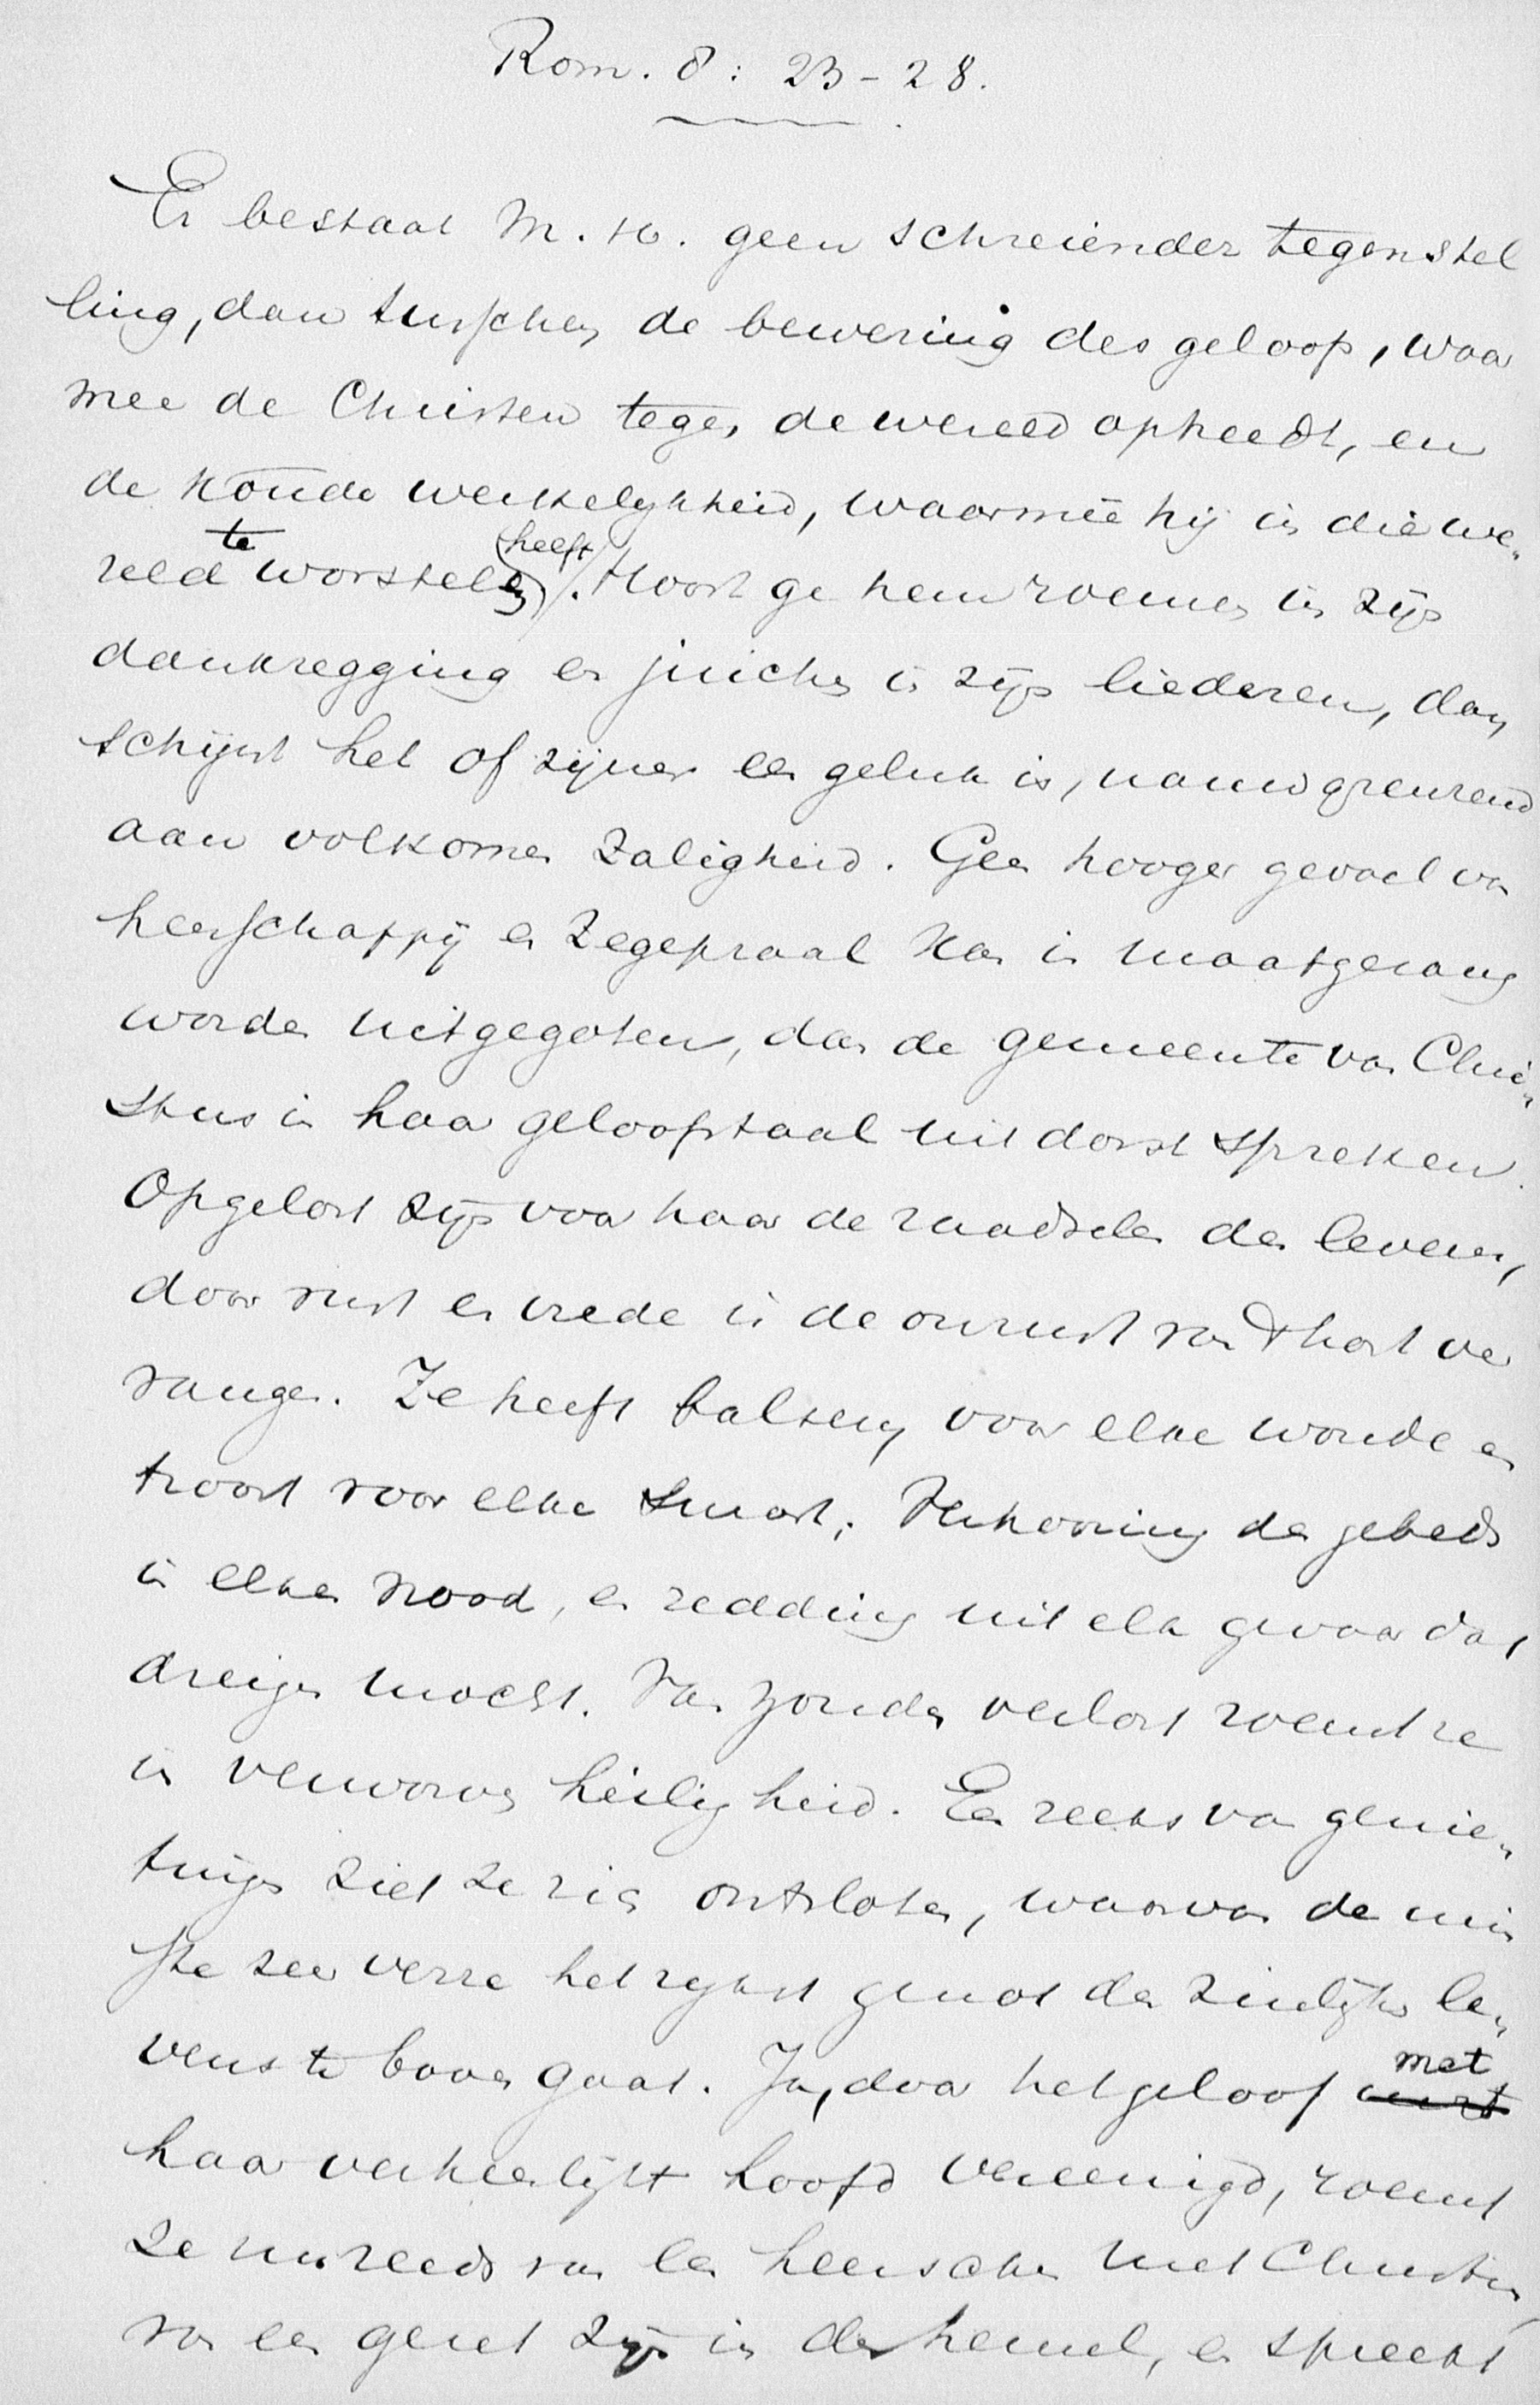 Rom. 8: 23-28.
Er bestaat M. H. geen schreiender tegenstel
ling, dan tusschen de bewering des geloofs, waar
mee de Christen tegen de wereld optreedt, en
de koude werkelykheid, waarmeê hij in die we„
reld te worstelen heeft. Hoort ge hem roemen in zijn
dankzegging en juichen in zijn liederen, dan
schijnt het of zijner een geluk is, nauw grenzend
aan volkomen zaligheid. Geen hooger gevoel van
heerschappij en zegepraal kan in maatgezang
worden uitgegoten, dan de gemeente van Chri„
stus in haar geloofstaal uit dorst spreken.
Opgelost zijn voor haar de raadselen des levens,
door rust en vrede is de onrust van 't hart ver
vangen. Ze heeft balsem voor elke wonde en
troost voor elke smart; Verhooring des gebeds
in elken nood, en redding uit elk gevaar dat
dreigen mocht. Van zonden verlost roemt ze
in verworven heiligheid. Een reeks van genie„
tingen ziet ze zich ontsloten, waarvan de min
ste zeer verre het rykst genot des zinlijken le„
vens te boven gaat. Ja, door het geloof met
haar verheerlijkt hoofd vereenigd, roemt
ze nu reeds van een heerschen met Christus,
van een gezet zijn in den hemel, en spreekt